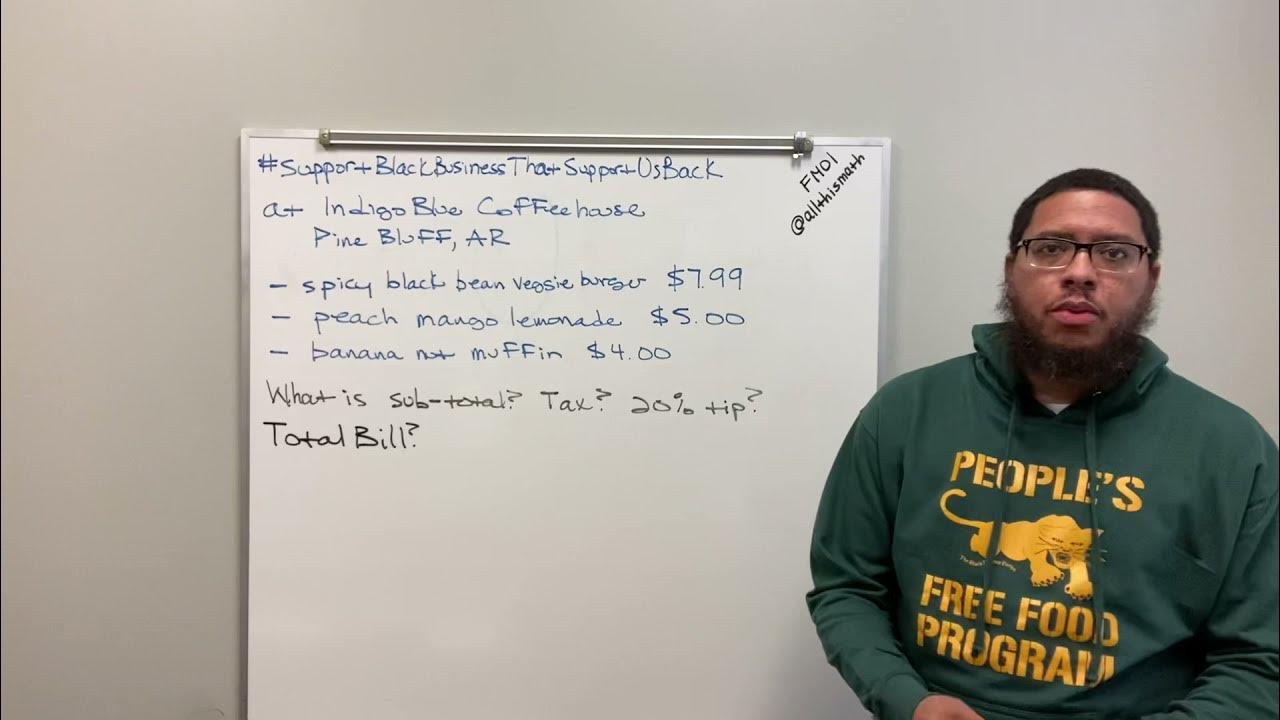 #SupportBlackBusinessThatSupportUsBack
at IndigoBlue Coffeehouse
Pine Bluff, AR
- spicy black bean veggie burger $7.99
- peach mango lemonade $5.00
- banana nut muffin $4.00
What is sub-total? Tax? 20% tip?
Total Bill?
FMDI
@allthismath
PEOPLE'S
FREE FOOD
PROGRAM